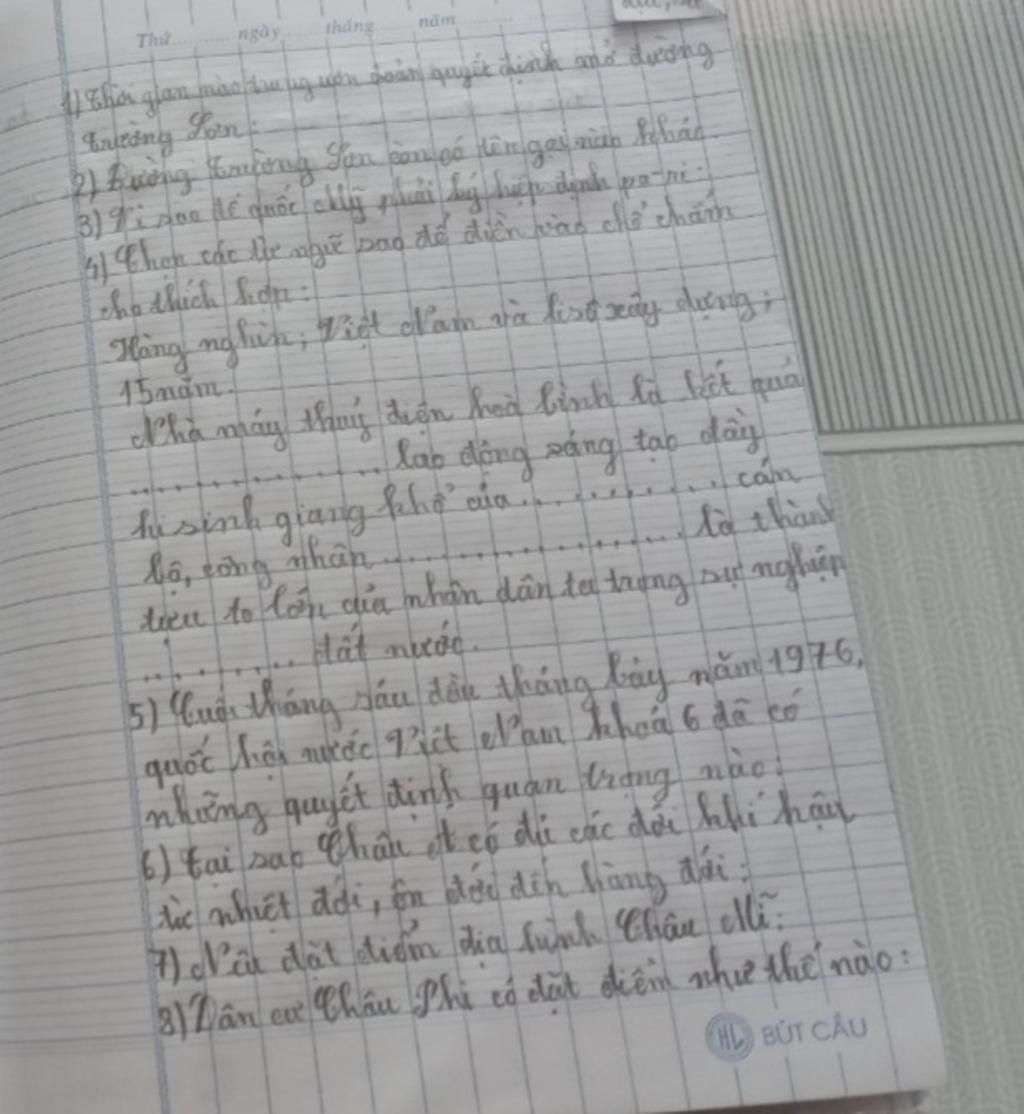 Thứ ngày tháng năm
1) Thời gian nào trung ương đoàn quyết định mở đường
Trường Sơn:
2) Đường Trường Sơn còn có tên gọi nào khác
3) Vì sao đế quốc Mỹ phải ký hiệp định pa-ri:
4) Chọn các từ ngữ sao để điền vào chỗ chấm
cho thích hợp:
Hàng nghìn; Việt Nam và xây dựng;
15 năm.
Nhà máy thuỷ điện hoà bình là kết quả
............... lao động sáng tạo đầy
hi sinh giang khổ của............ cán
bộ, công nhân.................... là thành
tựu to lớn của nhân dân ta trong sự nghiệp
........... đất nước.
5) Cuối tháng sáu đầu tháng bảy năm 1976,
quốc hội nước Việt Nam khoá 6 đã có
những quyết định quan trọng nào:
6) tại sao Châu Á có đủ các đới khí hậu
từ nhiệt đới, ôn đới đến hàng đới:
7) Nêu đặt điểm địa hình Châu Mĩ:
8) Dân cư Châu Phi có đặt điểm như thế nào:
HL BÚT CÂU